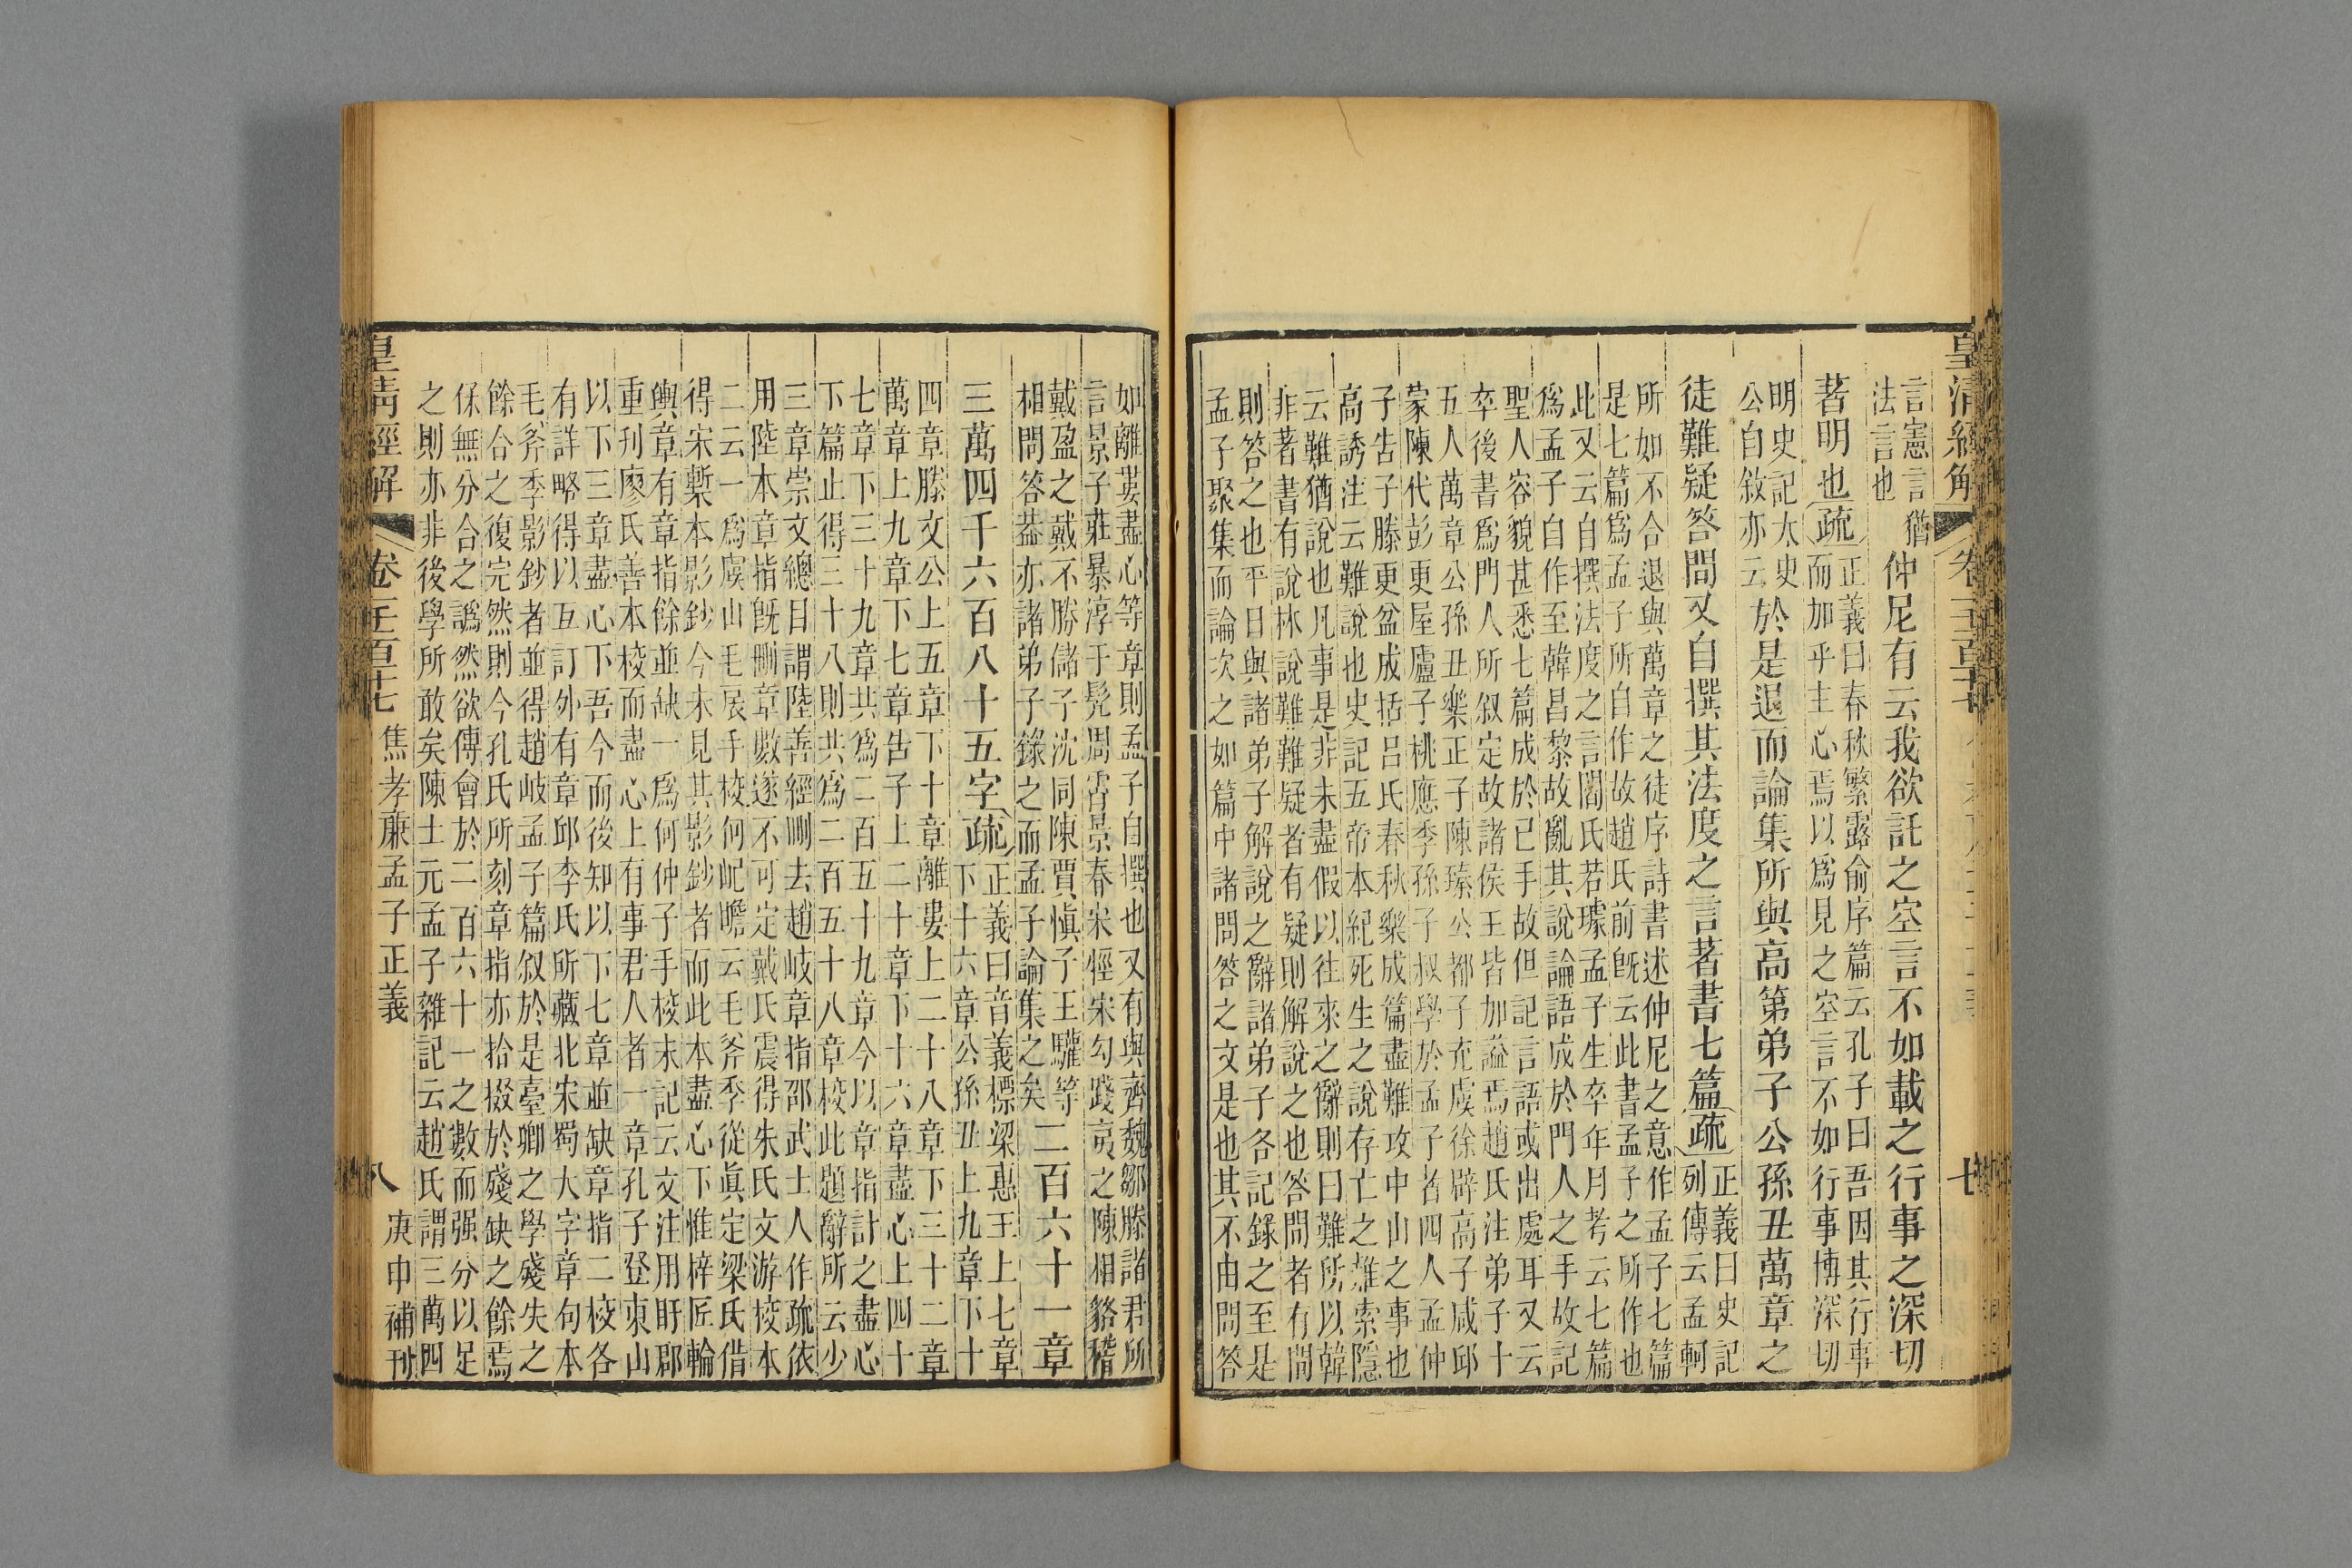 皇清經解
卷一千一百十七
七
言憲言猶
法言也
仲尼有云我欲託之空言不如載之行事之深切
著明也疏
正義曰春秋繁露俞序篇云孔子曰吾因其行事
而加乎主心焉以爲見之空言不如行事博深切
明史記太史
公自敘亦云
於是退而論集所與高第弟子公孫丑萬章之
徒難疑答問又自撰其法度之言著書七篇疏
正義曰史記
列傳云孟軻
所如不合退與萬章之徒序詩書述仲尼之意作孟子七篇
是七篇爲孟子所自作故趙氏前旣云此書孟子之所作也
此又云自撰法度之言閻氏若璩孟子生卒年月考云七篇
爲孟子自作至韓昌黎故亂其說論語成於門人之手故記
聖人容貌甚悉七篇成於已手故但記言語或出處耳又云
卒後書爲門人所叙定故諸侯王皆加謚焉趙氏注弟子十
五人萬章公孫丑樂正子陳臻公都子充虞徐辟高子咸邱
蒙陳代彭更屋廬子桃應季孫子叔學於孟子者四人孟仲
子告子滕更盆成括呂氏春秋樂成篇盡難攻中山之事也
高誘注云難說也史記五帝本紀死生之說存亡之難索隱
云難猶說也凡事是非未盡假以往來之辭則曰難所以韓
非著書有說林說難難疑者有疑則解說之也答問者有問
則答之也平日與諸弟子解說之辭諸弟子各記錄之至是
孟子聚集而論次之如篇中諸問答之文是也其不由問答
如離婁盡心等章則孟子自撰也又有與齊魏鄒滕諸君所
言景子莊暴淳于髡周霄景春宋牼宋勾踐夷之陳相貉稽
戴盈之戴不勝儲子沈同陳賈愼子王驩等
相問答葢亦諸弟子錄之而孟子論集之矣
二百六十一章
三萬四千六百八十五字疏
正義曰音義標梁惠王上七章
下十六章公孫丑上九章下十
四章滕文公上五章下十章離婁上二十八章下三十二章
萬章上九章下七章告子上二十章下十六章盡心上四十
七章下三十九章共爲二百五十九章今以章指計之盡心
下篇止得三十八則共爲二百五十八章校此題辭所云少
三章崇文總目謂陸善經刪去趙岐章指邵武士人作疏依
用陸本章指旣刪章數遂不可定戴氏震得朱氏文游校本
二云一爲虞山毛扆手校何屺瞻云毛斧季從眞定梁氏借
得宋槧本影鈔今未見其影鈔者而此本盡心下惟梓匠輪
輿章有章指餘並缺一爲何仲子手校未記云文注用盱郡
重刊廖氏善本校而盡心上有事君人者一章孔子登東山
以下三章盡心下吾今而後知以下七章並缺章指二校各
有詳略得以互訂外有章邱李氏所藏北宋蜀大字章句本
毛斧季影鈔者並得趙岐孟子篇叙於是臺卿之學殘失之
餘合之復完然則今孔氏所刻章指亦拾掇於殘缺之餘焉
保無分合之譌然欲傳會於二百六十一之數而强分以足
之則亦非後學所敢矣陳士元孟子雜記云趙氏謂三萬四
皇清經解
卷一千一百十七
焦孝廉孟子正義
八
庚申補刊